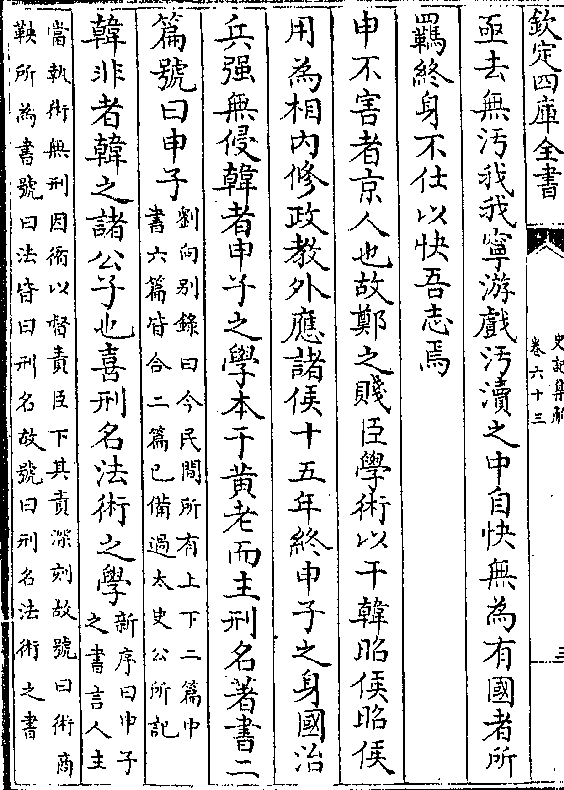 欽定四庫全書
史記集解
卷六十三
三
亟去無汚我我寧游戲汚瀆之中自快無為有國者所
羈終身不仕以快吾志焉
申不害者京人也故鄭之賤臣學術以干韓昭侯昭侯
用為相内修政教外應諸侯十五年終申子之身國治
兵强無侵韓者申子之學本于黄老而主刑名著書二
篇號曰申子
劉向别錄曰今民間所有上下二篇中
書六篇皆合二篇已備過太史公所記
韓非者韓之諸公子也喜刑名法術之學
新序曰申子
之書言人主
當執術無刑因術以督責臣下其責深刻故號曰術商
鞅所為書號曰法皆曰刑名故號曰刑名法術之書